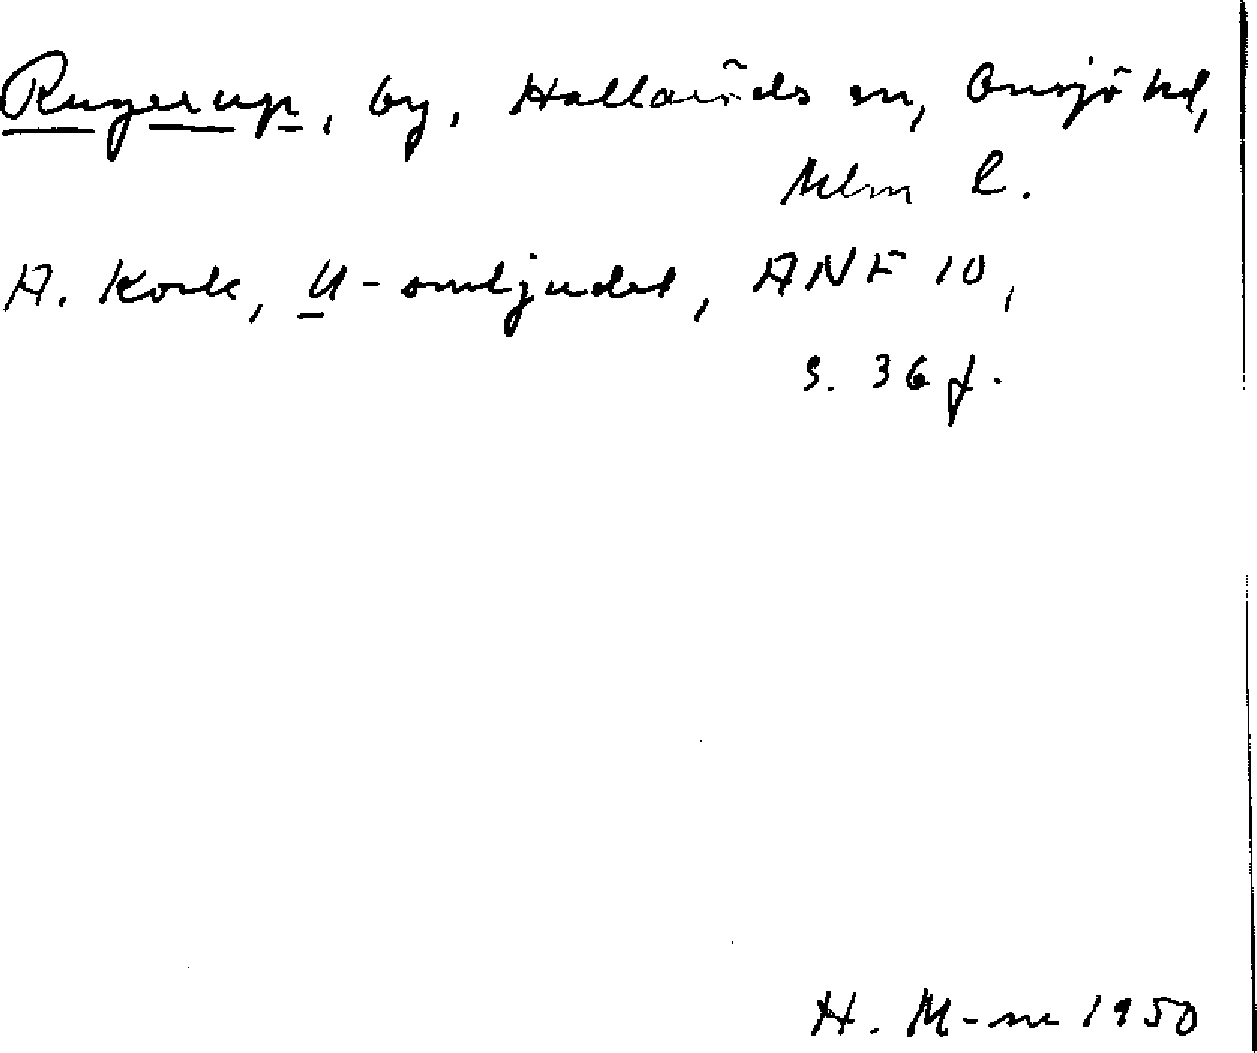 Rugerup, by, Hallaröds sn, Onsjö hd,
Mlm l.
A. Kock, U-omljudet, ANF 10,
s. 36 f.
H. M-m 1950